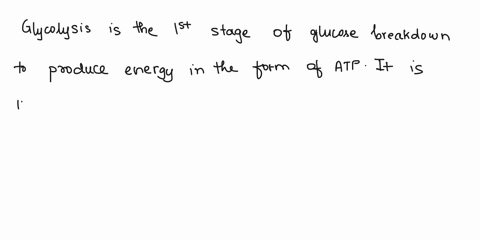 Glycolysis is the 1st stage of glucose breakdown
to produce energy in the form of ATP. It is